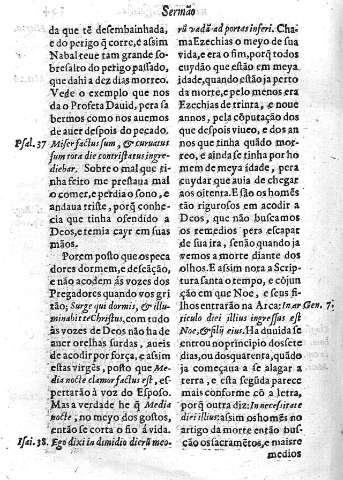 Sermão
da que tẽ desembainhada,
e do perigo q̃ corre, e assim
Nabal teue tam grande so-
bresalto do perigo passado,
que dahi a dez dias morreo.
Vede o exemplo que nos
da o Profeta Dauid, pera sa
bermos como nos auemos
de auer despois do peccado.
Psal. 37 Miser factus sum, & curuatus
sum tota die contristatus ingre-
diebar. Sobre o mal que ti-
nha feito me prestaua mal
o comer, e perdia o sono, e
andaua triste, porq̃ conhe-
cia que tinha ofendido a
Deos, e temia cayr em suas
mãos.
Porem posto que os peca
dores dormem, e descãção,
e não acodem âs vozes dos
Pregadores quando vos gri
tão; Surge qui dormis, & illu-
minabit te Christus, com tudo
âs vozes de Deos não ha de
auer orelhas surdas, aueis
de acodir por força, e assim
estas virgẽs, posto que Me-
dia nocte clamor factus est, es-
pertarão â voz do Esposo.
Mas a verdade he q̃ Media
nocte, no meyo dos gostos,
então se corta o fio â vida.
Isai. 38. Ego dixi in dimidio dierũ meo-
rũ vadã ad portas inferi. Cha-
ma Ezechias o meyo de sua
vida, e era o fim, porq̃ todos
cuydão que estão em meya
idade, quando estão ja perto
da morte, e pelo menos era
Ezechias de trinta, e noue
annos, pela cõputação dos
que despois viueo, e dos an
nos que tinha quãdo mor-
reo, e ainda se tinha por ho
mem de meya idade, pera
cuydar que auia de chegar
aos oitenta. E são os homẽs
tão rigurosos em acodir a
Deos, que não buscamos
os remedios pera escapar
de sua ira, senão quando ja
vemos a morte diante dos
olhos. E assim nota a Scrip-
tura santa o tempo, e cõjun
ção em que Noe, e seus fi-
lhos entrarão na Arca: In ar Gen. 7.
ticulo diei illius ingressus est
Noe, & filij eius. Ha duuida se
entrou no principio dos sete
dias, ou dos quarenta, quãdo
ja começaua a se alagar a
terra, e esta segũda parece
mais conforme cõ a letra,
porq̃ outra diz: In necessitate
diei illius assim os homẽs no
artigo da morte então bus-
cão os sacramẽtos, e mais re
medios